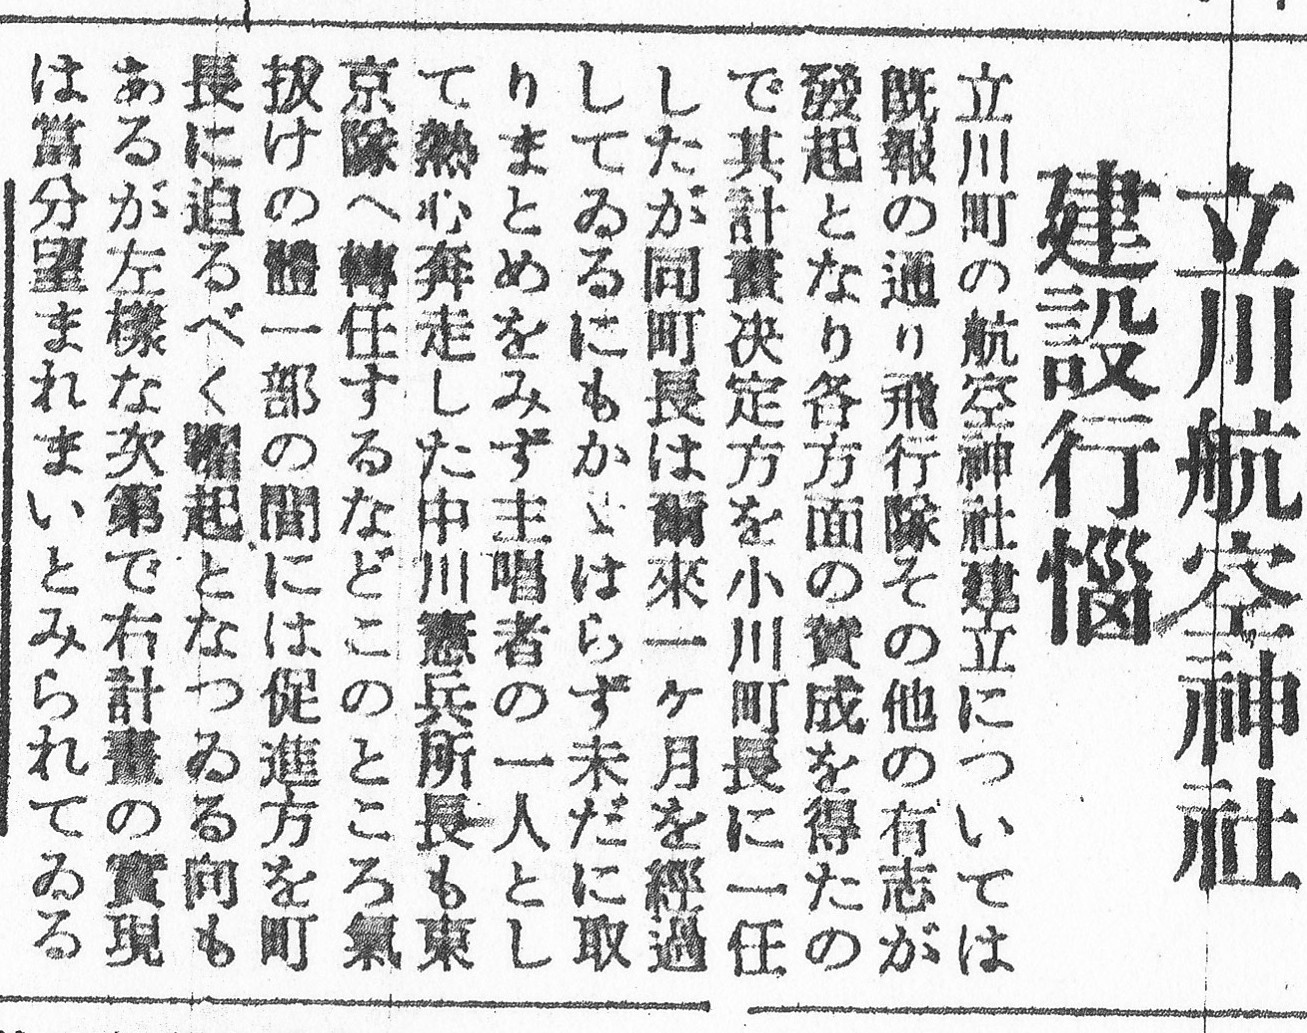 立川航空神社
建設行惱
立川町の航空神社建立については
既報の通り飛行隊その他の有志が
發起となり各方面の賛成を得たの
で其計畫决定方を小川町長に一任
したが同町長は爾來一ヶ月を經過
してゐるにもかゝはらず未だに取
りまとめをみず主唱者の一人とし
て熱心奔走した中川憲兵所長も東
京隊へ轉任するなどこのところ氣
拔けの體一部の間には促進方を町
長に迫るべく蹶起となつゐる向も
あるが左樣な次第で右計畫の實現
は當分望まれまいとみられてゐる